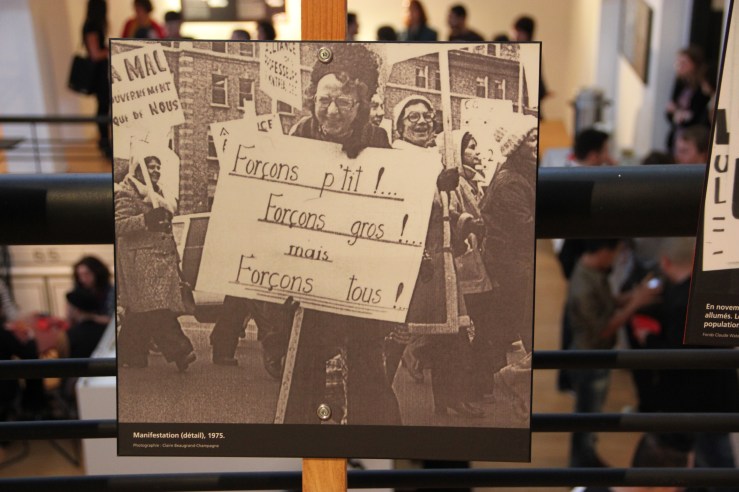 MAL
GOUVERNEMENT
QUI DE NOUS
ALLIANCE
PROFESSEURS
Forçons p'tit !...
Forçons gros !...
mais
Forçons tous !
Manifestation (détail), 1975.
Photographie : Claire Beaugrand-Champagne
En novem
allumés. L
population